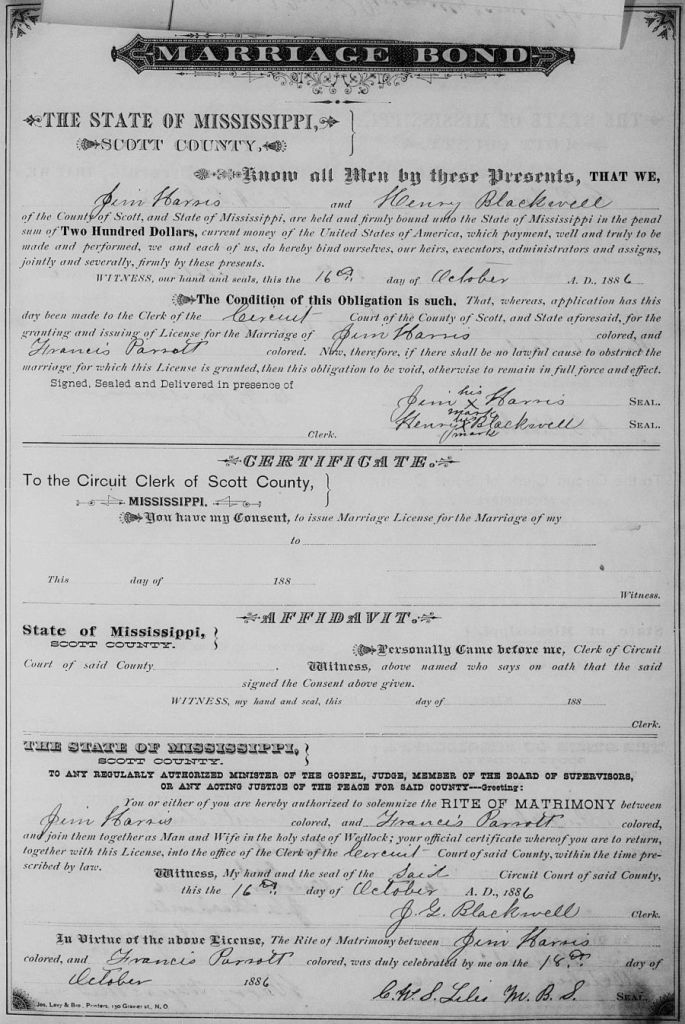 MARRIAGE BOND
THE STATE OF MISSISSIPPI,
SCOTT COUNTY,
Know all Men by these Presents, THAT WE,
Jim Harris and Henry Blackwell
of the County of Scott, and State of Mississippi, are held and firmly bound unto the State of Mississippi in the penal
sum of Two Hundred Dollars, current money of the United States of America, which payment, well and truly to be
made and performed, we and each of us, do hereby bind ourselves, our heirs, executors, administrators and assigns,
jointly and severally, firmly by these presents.
WITNESS, our hand and seals, this the 16th day of October A. D., 1886
The Condition of this Obligation is such, That, whereas, application has this
day been made to the Clerk of the Circuit Court of the County of Scott, and State aforesaid, for the
granting and issuing of License for the Marriage of Jim Harris colored, and
Francis Parrott colored. Now, therefore, if there shall be no lawful cause to obstruct the
marriage for which this License is granted, then this obligation to be void, otherwise to remain in full force and effect.
Signed, Sealed and Delivered in presence of
his
Jim X Harris SEAL.
mark
his
Henry X Blackwell SEAL.
mark
Clerk.
CERTIFICATE.
To the Circuit Clerk of Scott County,
MISSISSIPPI.
You have my Consent, to issue Marriage License for the Marriage of my
to
This day of 188
Witness.
AFFIDAVIT.
State of Mississippi,
SCOTT COUNTY.
Personally Came before me, Clerk of Circuit
Court of said County . Witness, above named who says on oath that the said
signed the Consent above given.
WITNESS, my hand and seal, this day of 188
Clerk.
THE STATE OF MISSISSIPPI,
SCOTT COUNTY.
TO ANY REGULARLY AUTHORIZED MINISTER OF THE GOSPEL, JUDGE, MEMBER OF THE BOARD OF SUPERVISORS,
OR ANY ACTING JUSTICE OF THE PEACE FOR SAID COUNTY---Greeting:
You or either of you are hereby authorized to solemnize the RITE OF MATRIMONY between
Jim Harris colored, and Francis Parrott colored,
and join them together as Man and Wife in the holy state of Wedlock; your official certificate whereof you are to return,
together with this License, into the office of the Clerk of the Circuit Court of said County, within the time pre-
scribed by law.
Witness, My hand and the seal of the Said Circuit Court of said County,
this the 16th day of October A. D., 1886
J. G. Blackwell Clerk.
In Virtue of the above License, The Rite of Matrimony between Jim Harris
colored, and Francis Parrott colored, was duly celebrated by me on the 18th day of
October 1886
C. W. S. Lilis M. B. S. SEAL.
Jos. Levy & Bro., Printers, 130 Gravier st., N. O.